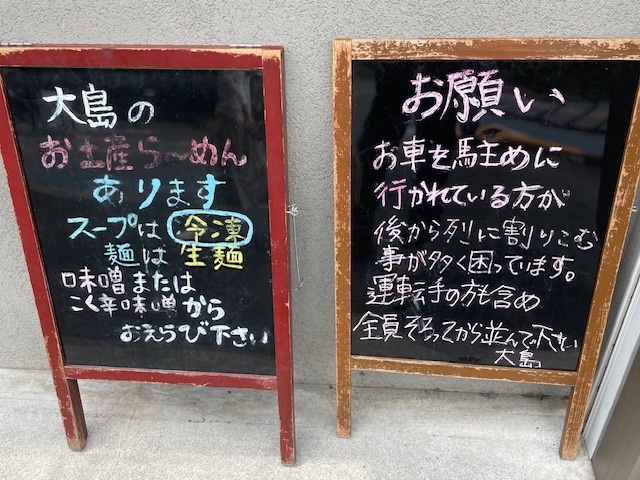 大島の
お土産ら〜めん
あります
スープは冷凍
麺は生麺
味噌または
こく辛味噌から
おえらび下さい
お願い
お車を駐めに
行かれている方が
後から列に割りこむ
事が多く困っています。
運転手の方も含め
全員そろってから並んで下さい
大島